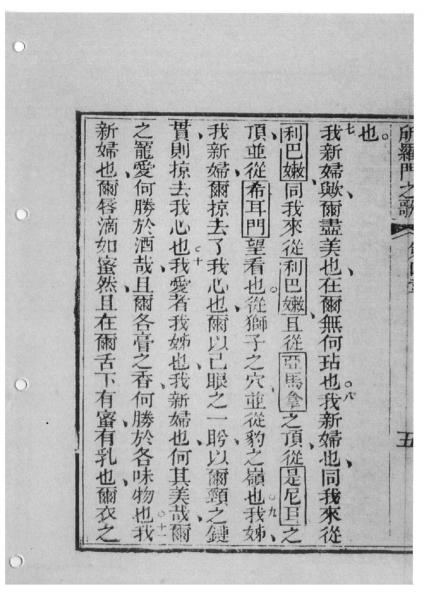 所羅門之歌 第四章 五
也。
七我新婦歟爾盡美也、在爾無何玷也。八我新婦也、同我來從
利巴嫩、同我來從利巴嫩、且從亞馬拿之頂、從是尼耳之
頂、並從希耳門望看也、從獅子之穴、並從豹之嶺也。九我姊、
我新婦、爾掠去了我心也、爾以己眼之一盼、以爾頸之鏈
貫、則掠去我心也。十我愛者我姊也、我新婦也、何其美哉、爾
之寵愛何勝於酒哉、且爾各膏之香何勝於各味物也。十一我
新婦也、爾唇滴如蜜然、且在爾舌下有蜜有乳也、爾衣之